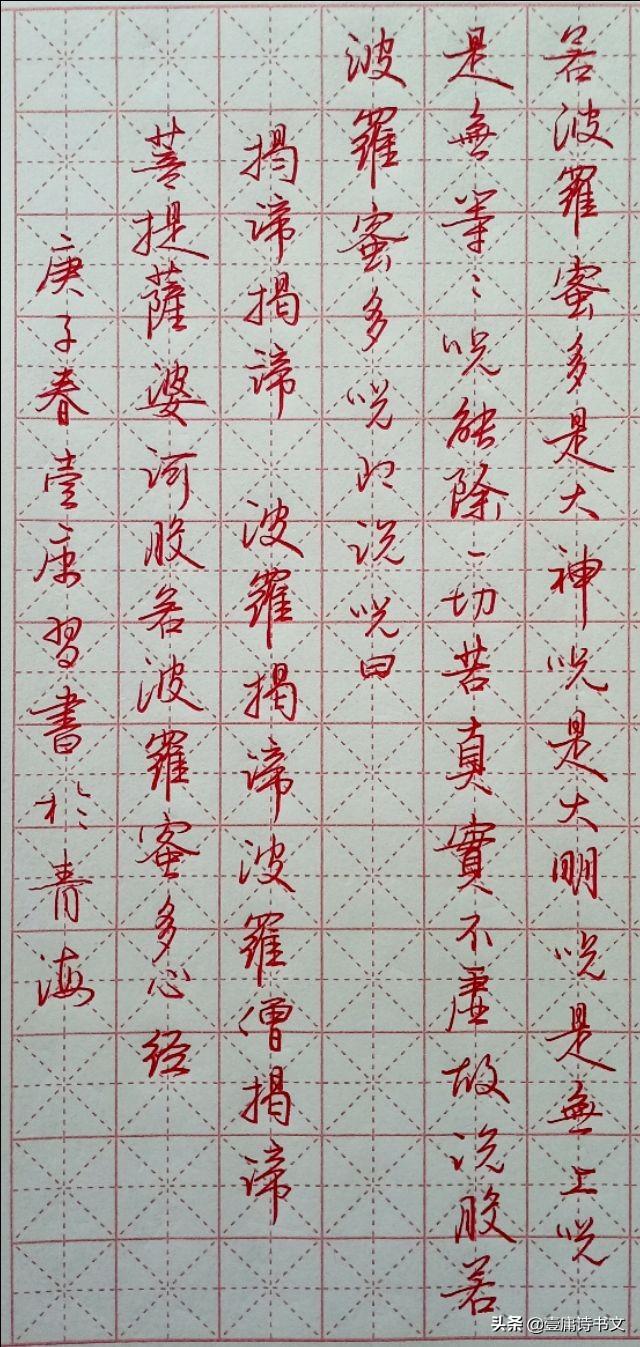 若波羅蜜多是大神咒是大明咒是無上咒
是無等々咒能除一切苦真實不虛故说般若
波羅蜜多咒即说咒曰
揭諦揭諦 波羅揭諦波羅僧揭諦
菩提薩婆诃般若波羅蜜多心经
庚子春壹庸習書於青海
头条 @壹庸诗书文